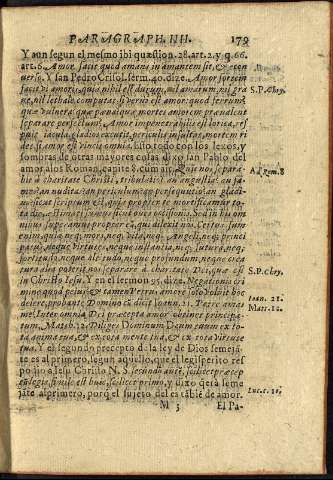 PARAGRAPH. IIII. 179
Y aun segun el mesmo ibi quæstion. 28. art. 2. y q. 66.
art. 6. Amor facit quod amans in amantem sit, & econ
verso. Y san Pedro Crisol. serm. 40. dize. Amor fortem
facit vi amoris, quia nihil est durum, nil amarum, nil gra
ne, nil lethale computat. si verus est amor: quod ferrum?
quæ vulnera? quæ pœna? quæ mortes amorem prævalent
separare perfectum? Amor impenetrabilis est lorica, res
puit iacula, gladios excutit, periculis insultat, mortem ri
det, si amor est vincit omnia. Esto todo con los lexos, y
sombras de otras mayores cosas dixo san Pablo del
amor a los Roman. capite 8. cum ait. Quis nos separa-
bit à charitate Christi, tribulatio? an angustia? an fa-
mes? an nuditas? an periculum? an persequutio? an gladi-
us? sicut scriptum est, quia propter te mortificamur to-
ta die, æstimati sumus sicut oves occisionis. Sed in his om
nibus superamus propter eũ, qui dilexit nos. Certus sum
enim quia neq; mors, neq; vita, neq; Angeli, neq; princi
patus, neque virtutes, neque instantia, neq; futura, neq;
fortitudo, neque altitudo, neque profundum, neque crea
tura alia poterit nos separare à charitate Dei, quæ est
in Christo Iesu. Y en el sermon 95. dize. Negationis cri
men
delere, probante Domino cũ dicit Ioan. 21. Petre amas
me? Inter omnia Dei præcepta amor obtinet principa-
tum, Matth. 12. Diliges Dominum Deum tuum ex to-
ta anima tua, & ex tota mente tua, & ex tota virtute
tua. Y el segundo precepto de la ley de Dios semeja-
te es al primero, segun aquello, que el legisperito res
pondio a Iesu Christo N. S. secundũ autẽ, scilicet præcep
simile est huic, scilicet primo, y dixo q̃ era seme
jãte al primero, porq̃ el sujeto del es tãbiẽ de amor.
M 3 El Pa-
S.P.Chry.
Ad Rom. 8
S.P.Chry.
Ioan. 21.
Matt. 12.
Luc. c. 10.